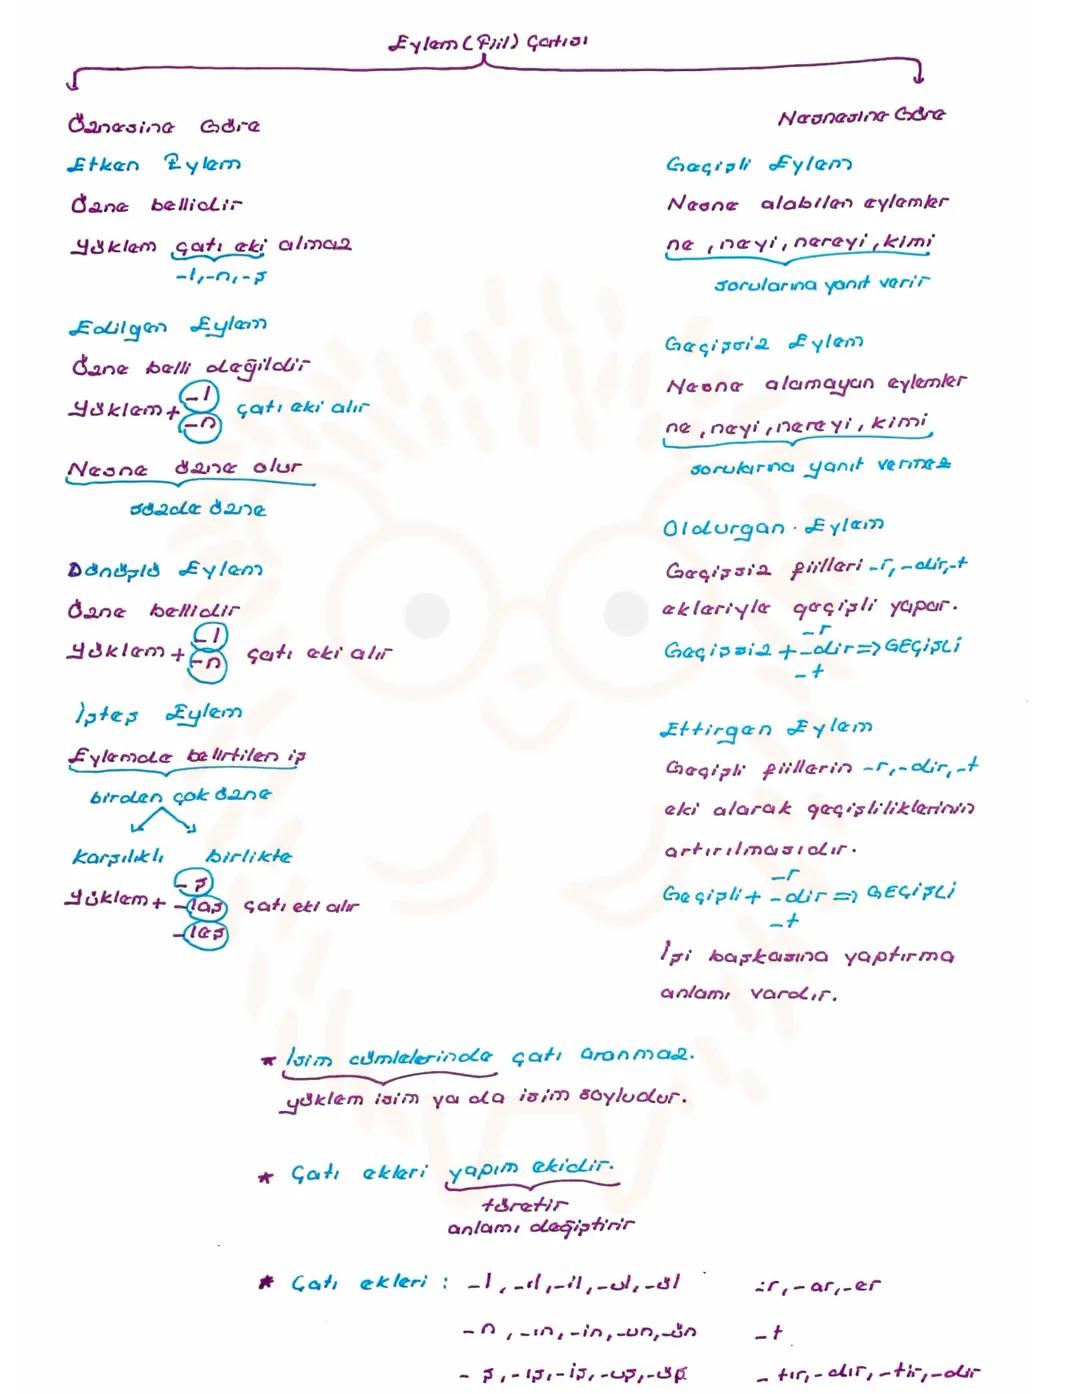 Eylem (Fiil) Çatısı
Öznesine Göre
Etken Eylem
Özne bellidir
Yüklem çatı eki almaz
-l,-n,-ş
Edilgen Eylem
Özne belli değildir
Yüklem+ -l -n çatı eki alır
Nesne özne olur
sözde özne
Dönüşlü Eylem
Özne bellidir
Yüklem+ -l -n çatı eki alır
İşteş Eylem
Eylemde belirtilen iş
birden çok özne
karşılıklı birlikte
Yüklem+ -ş -laş -leş çatı eki alır
Nesnesine Göre
Geçişli Eylem
Nesne alabilen eylemler
ne, neyi, nereyi, kimi
sorularına yanıt verir
Geçişsiz Eylem
Nesne alamayan eylemler
ne, neyi, nereyi, kimi
sorularına yanıt vermez
Oldurgan Eylem
Geçişsiz fiilleri -r, -dir,-t
ekleriyle geçişli yapar.
Geçişsiz + -r -dir -t => GEÇİŞLİ
Ettirgen Eylem
Geçişli fiillerin -r,-dir,-t
eki alarak geçişliliklerinin
artırılmasıdır.
Geçişli+ -r -dir -t => GEÇİŞLİ
İşi başkasına yaptırma
anlamı vardır.
* İsim cümlelerinde çatı aranmaz.
yüklem isim ya da isim soyludur.
* Çatı ekleri yapım ekidir.
türetir
anlamı değiştirir
* Çatı ekleri : -l, -ıl,-il,-ul,-ül -r,-ar,-er
-n,-ın,-in,-un,-ün -t
-ş,-ış,-iş,-uş,-üş -tır,-dır,-tir,-dir